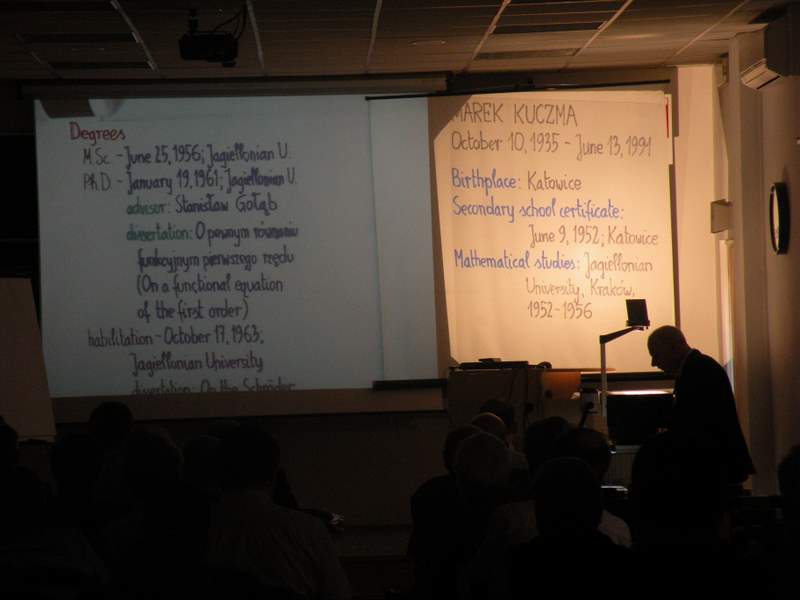 Degrees
M.Sc. - June 25, 1956; Jagiellonian U.
Ph.D. - January 19, 1961; Jagiellonian U.
advisor: Stanisław Gołąb
dissertation: O pewnym równaniu
funkcyjnym pierwszego rzędu
(On a functional equation
of the first order)
habilitation - October 17, 1963;
Jagiellonian University
dissertation: On the Schröder
MAREK KUCZMA
October 10, 1935 - June 13, 1991
Birthplace: Katowice
Secondary school certificate:
June 9, 1952; Katowice
Mathematical studies: Jagiellonian
University, Kraków,
1952-1956